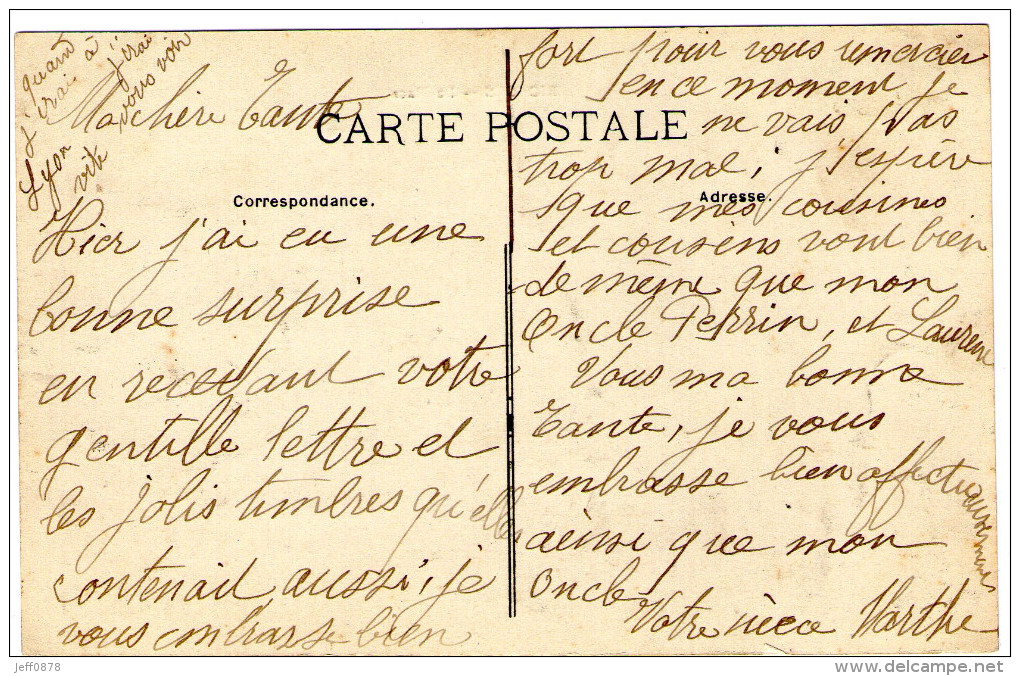 quand
j'irai à
Lyon
j'irai
vous voir
vite
Ma chère Tante
CARTE POSTALE
Correspondance.
Adresse.
Hier j'ai eu une
bonne surprise
en recevant votre
gentille lettre et
les jolis timbres qu'elle
contenait aussi, je
vous embrasse bien
fort pour vous remercier
en ce moment je
ne vais pas
trop mal, j'espère
que mes cousines
et cousins vont bien
de même que mon
Oncle Perrin, et Laurent
Vous ma bonne
Tante, je vous
embrasse bien affectueusement
ainsi que mon
Oncle
Votre nièce Marthe
jeff0878
delcampe.net